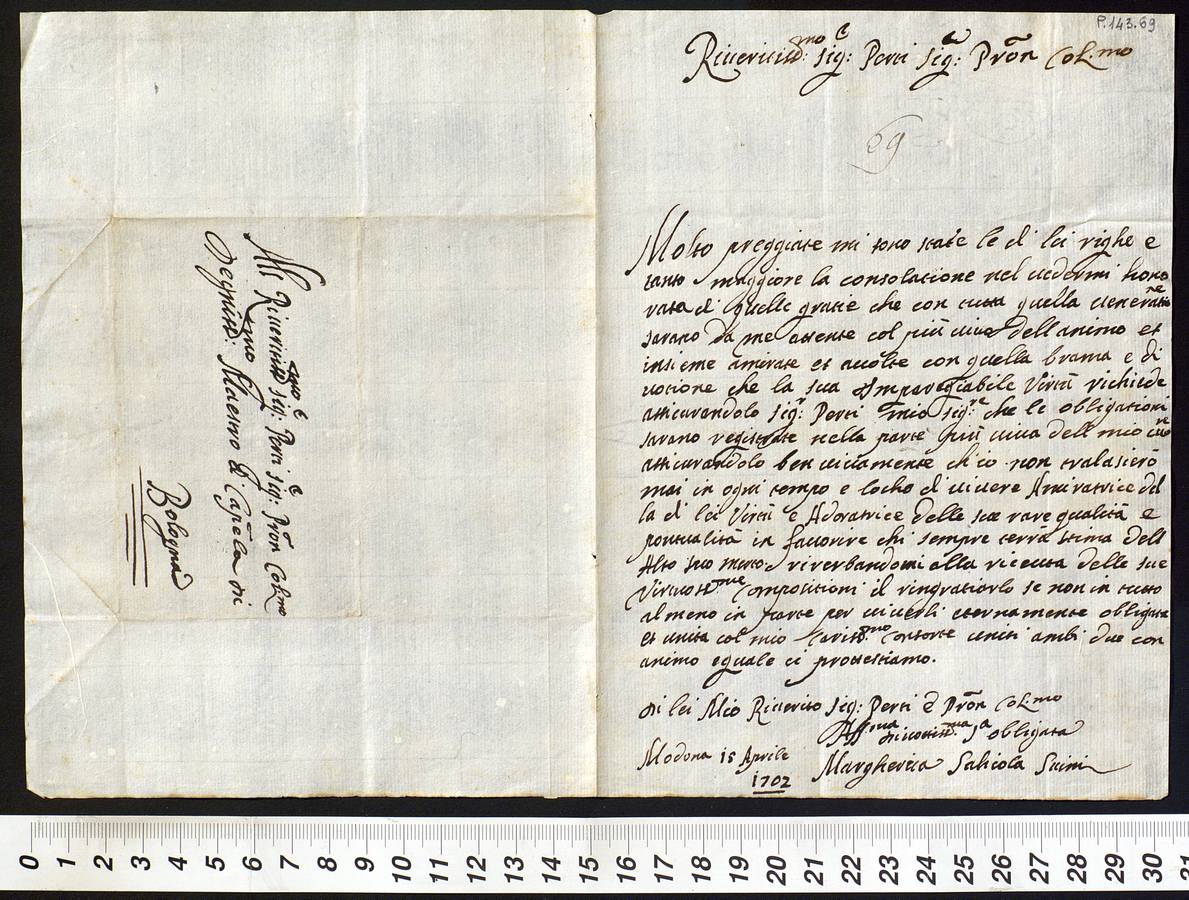 P.143.69
Riveritiss.mo Sig.e Perti Sig.e Prõn Col.mo
69
Molto preggiate mi sono state le di lei righe e
tanto maggiore la consolatione nel vedermi hono
rata di quelle gratie che con tutta quella veneratio.ne
sarano da me attente col più vivo dell'animo et
insieme amirate et acolte con quella brama e di
votione che la sua Impareggiabile Virtù richiede
assicurandolo Sig.r Perti mio Sig.re che le obligationi
sarano registrate nella parte più viva dell mio cuo.re
assicurandolo ben vivamente ch'io non tralasierò
mai in ogni tempo e locho di vivere Amiratrice del
la di lei Virtù e Adoratrice delle sue rare qualità e
pontualità in favorire chi sempre terrà stima dell
Alto suo merto. riverbandomi alla riceuta delle sue
Virtuosiss.me Compositioni il ringratiarlo se non in tutto
al meno in parte per viverli eternamente obligata
et unita col mio Cariss.mo Consorte uniti ambi due con
animo eguale ci protestiamo.
di lei Mio Riverito Sig: Perti e Prõn Col.mo
Aff.ma divotiss.ma S.a obligata
Modona 15 Aprile
1702
Margherita Salicola Suini
Al Riveritiss.mo Sig.e Perti Sig.e Prõn Col.mo
Degniss.mo Maestro di Capela di
Bologna